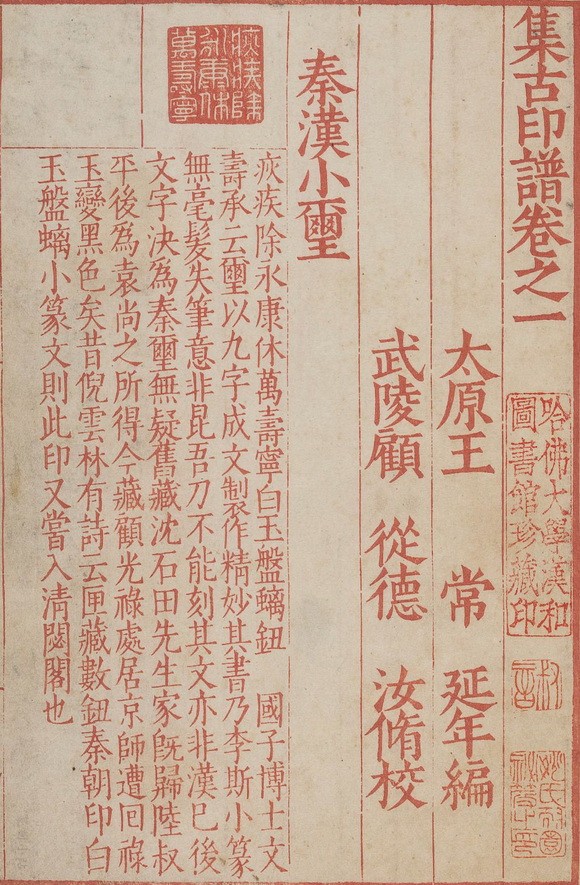 集古印譜卷之一
哈佛大學漢和
圖書館珍藏印
太原王 常 延年編
武陵顧 從德 汝脩校
秦漢小璽
疢疾除
永康休
萬壽寧
疢疾除永康休萬壽寧白玉盤螭鈕 國子博士文
壽承云璽以九字成文製作精妙其書乃李斯小篆
無毫髮失筆意非昆吾刀不能刻其文亦非漢已後
文字決為秦璽無疑舊藏沈石田先生家旣歸陸叔
平後為袁尚之所得今藏顧光祿處居京師遭回祿
玉變黑色矣昔倪雲林有詩云匣藏數鈕秦朝印白
玉盤螭小篆文則此印又嘗入清閟閣也